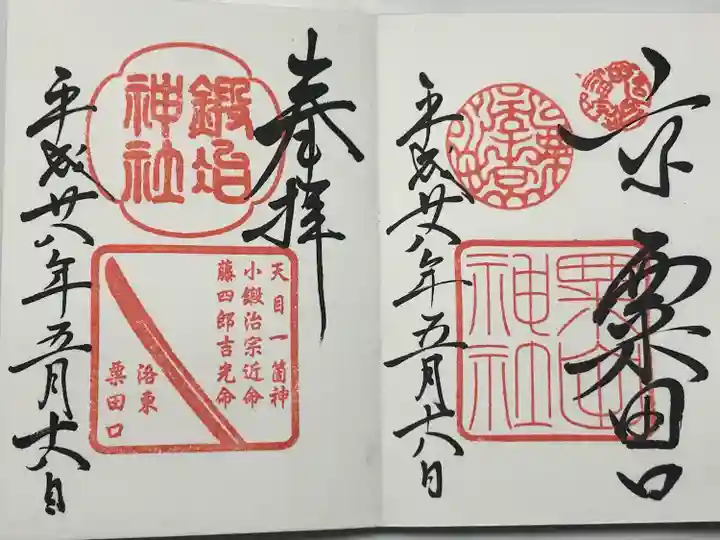 京
粟田口
粟田
神社
平成廿八年五月十八日
奉拝
鍛冶
神社
天目一箇神
小鍛治宗近命
藤四郎吉光命
洛東
粟田口
平成廿八年五月十八日